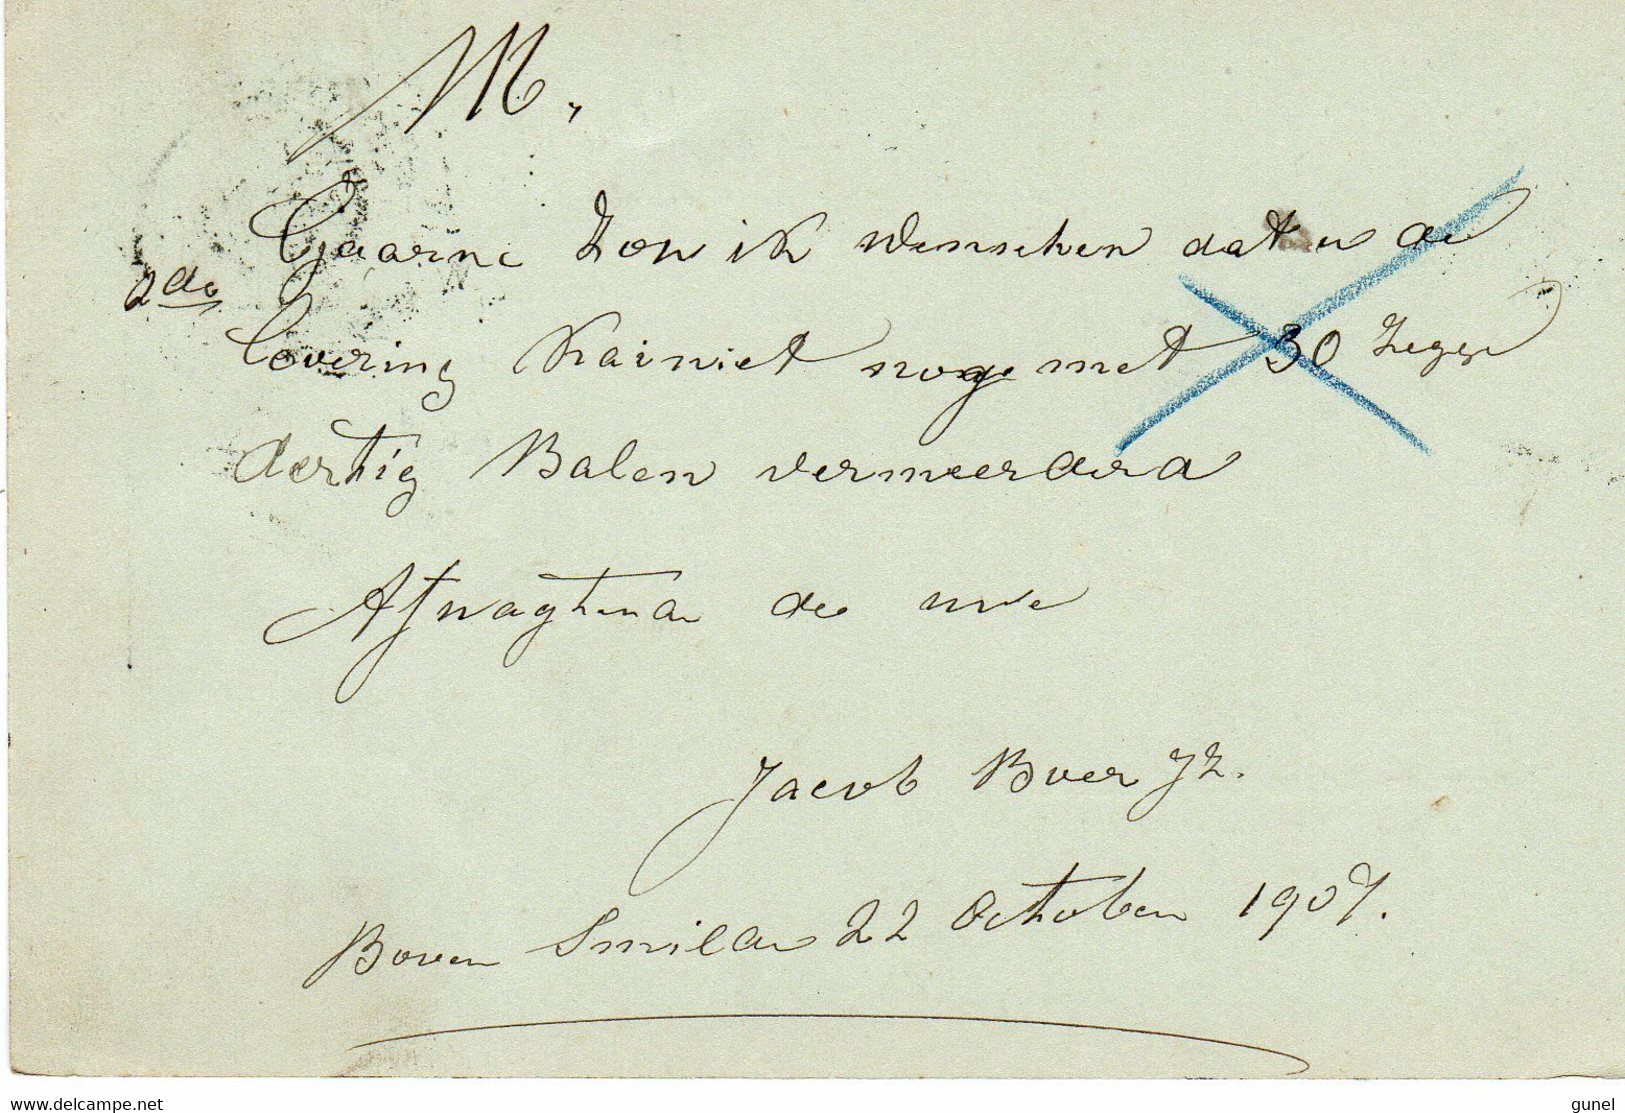 M.,
Gaarne Zou ik Wenschen dat u de
2de Levering Kainiet noge met 30 Zegge
dertig Balen vermeerderd
Afwagtend de uwe
Jacob Boer Jz.
Boven Smilde 22 October 1907.
www.delcampe.net
gunel